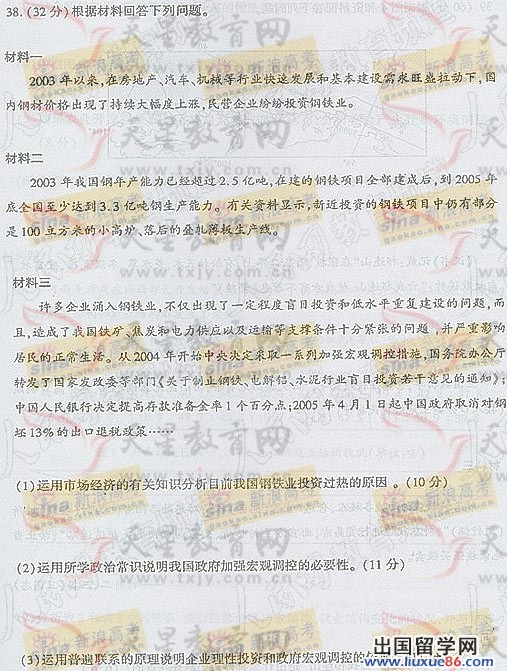 38.(32分)根据材料回答下列问题。
材料一
2003年以来,在房地产、汽车、机械等行业快速发展和基本建设需求旺盛拉动下,国
内钢材价格出现了持续大幅度上涨,民营企业纷纷投资钢铁业。
材料二
2003年我国钢年产能力已经超过2.5亿吨,在建的钢铁项目全部建成后,到2005年
底全国至少达到3.3亿吨钢生产能力。有关资料显示,新近投资的钢铁项目中仍有部分
是100立方米的小高炉、落后的叠轧薄板生产线。
材料三
许多企业涌入钢铁业,不仅出现了一定程度盲目投资和低水平重复建设的问题,而
且,造成了我国铁矿、焦炭和电力供应以及运输等支撑条件十分紧张的问题,并严重影响
居民的正常生活。从2004年开始中央决定采取一系列加强宏观调控措施,国务院办公厅
转发了国家发改委等部门《关于制止钢铁、电解铝、水泥行业盲目投资若干意见的通知》;
中国人民银行决定提高存款准备金率1个百分点;2005年4月1日起中国政府取消对钢
坯13%的出口退税政策……
(1)运用市场经济的有关知识分析目前我国钢铁业投资过热的原因。(10分)
(2)运用所学政治常识说明我国政府加强宏观调控的必要性。(11分)
(3)运用普遍联系的原理说明企业理性投资和政府宏观调控的
天星教育网
www.txjy.com.cn
sina 新浪高考
出国留学网
www.liuxue86.com